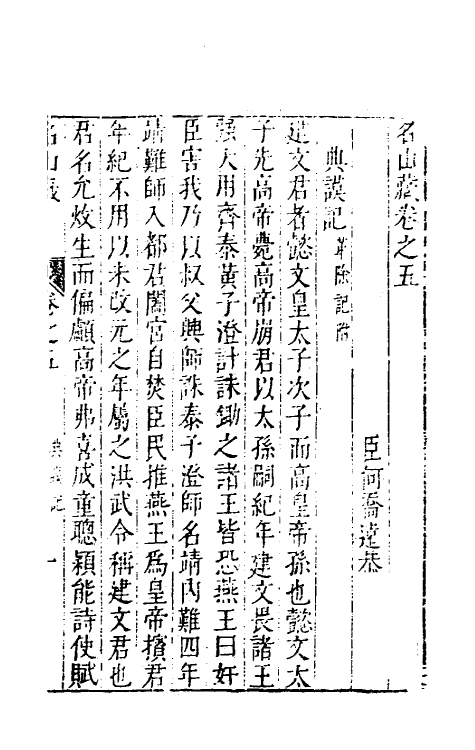 名山藏卷之五
臣何喬遠恭
典謨記 革除記附
建文君者懿文皇太子次子而高皇帝孫也懿文太
子先高帝薨高帝崩君以太孫嗣紀年建文畏諸王
強大用齊泰黃子澄計誅鋤之諸王皆恐燕王曰奸
臣害我乃以叔父興師誅泰子澄師名靖內難四年
靖難師入都君闔宮自焚臣民推燕王爲皇帝擯君
年紀不用以未改元之年屬之洪武今稱建文君也
君名允炆生而偏顱高帝弗喜成童聰穎能詩使賦
名山藏 卷之五 典謨記 一